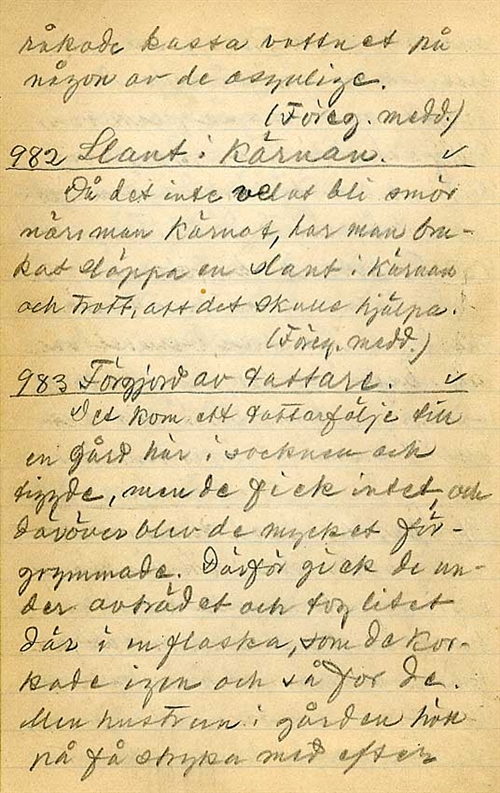 råkade kasta vattnet på
någon av de osynlige.
(Föreg. medd.)
982 Slant i kärnan. ✓
Då det inte velat bli smör
när man kärnat, har man bru-
kat släppa en slant i kärnan
och trott, att det skulle hjälpa.
(Föreg. medd.)
983 Förgjord av tattare. ✓
Det kom ett tattarfölje till
en gård här i socknen och
tiggde, men de fick intet, och
däröver blev de mycket för-
grymmade. Därför gick de un-
der avträdet och tog litet
där i en flaska, som de kor-
kade igen och så for de.
Men hustrun i gården höll
på få stryka med efter